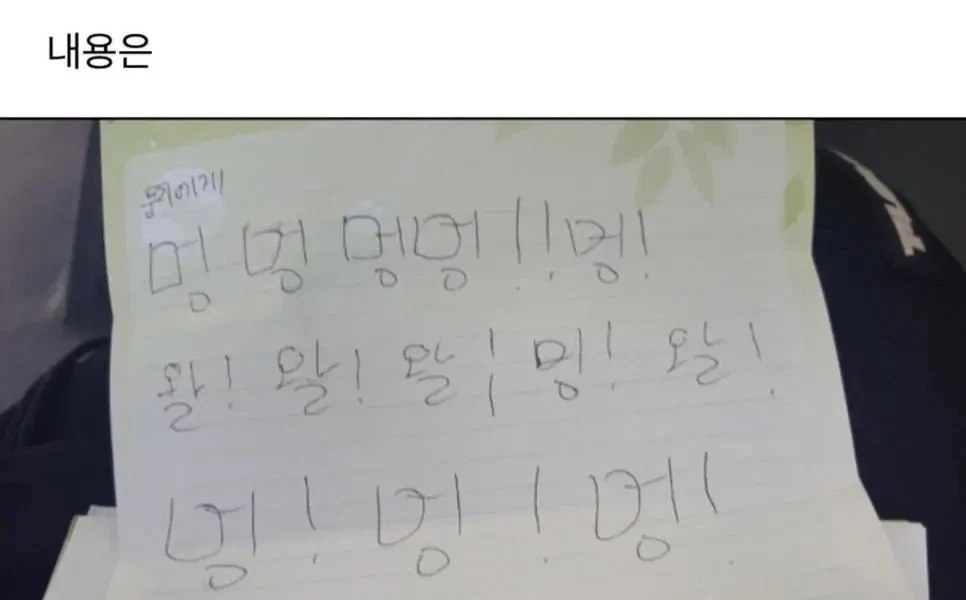 내용은
뭉치에게
멍 멍 멍멍!! 멍!
왈! 왈! 왈! 멍! 왈!
멍! 멍! 멍!